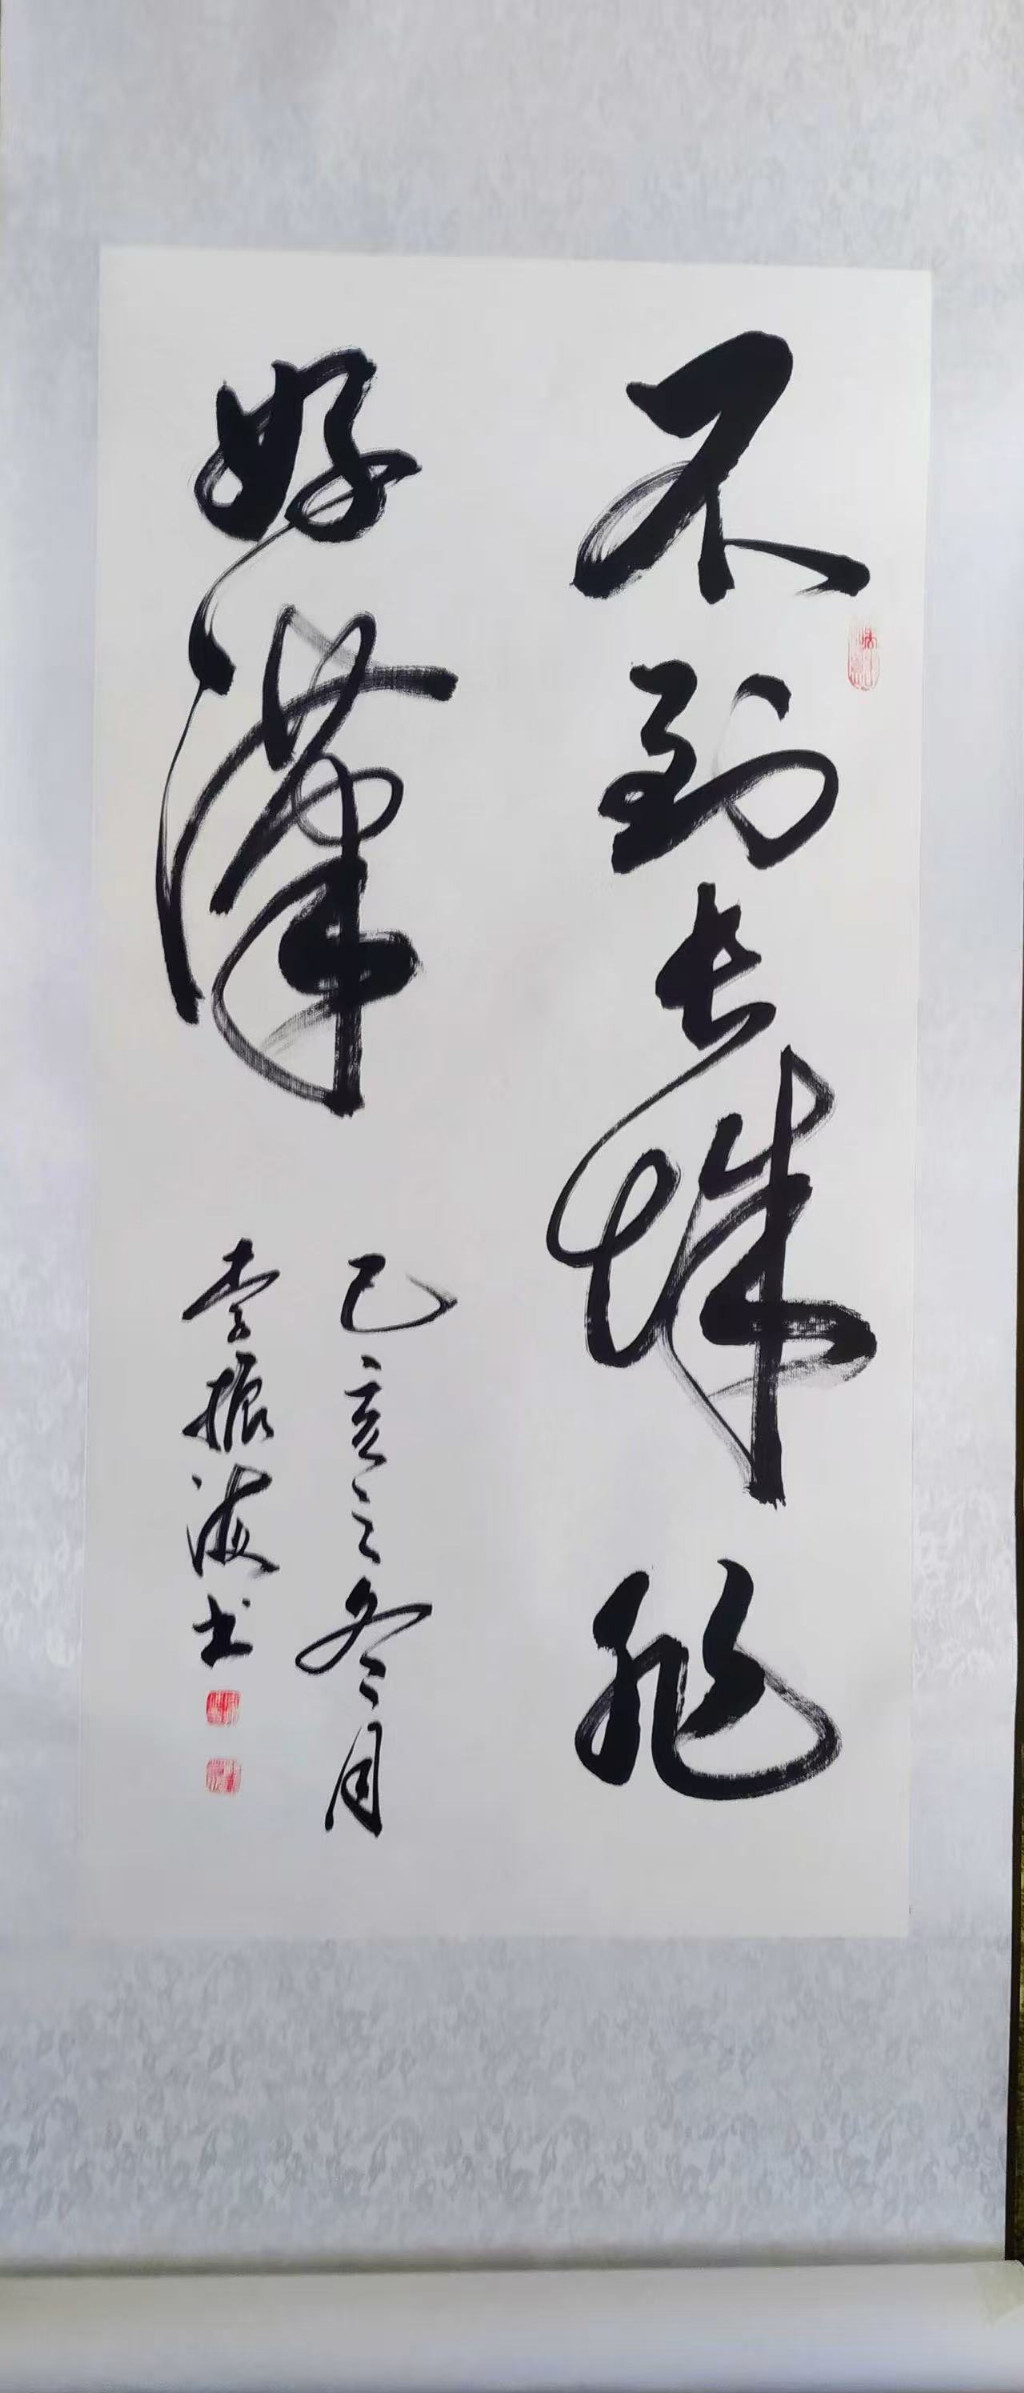 不到长城非
好漢
己亥之冬月
李振海书